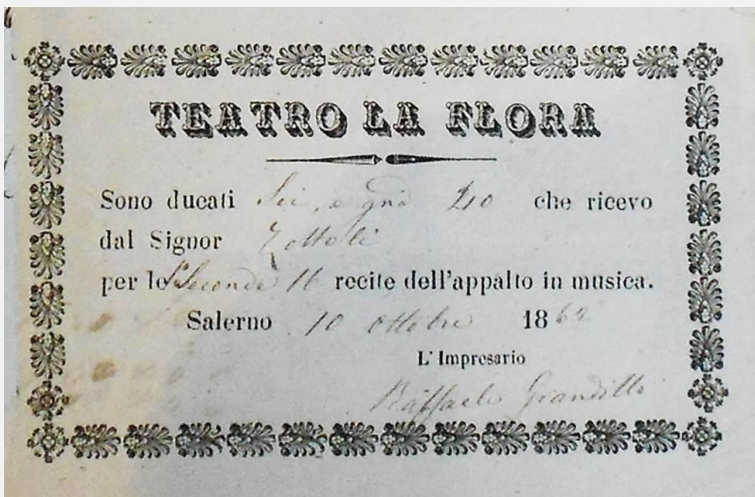 TEATRO LA FLORA
Sono ducati Sei, e gna 40 che ricevo
dal Signor Zottoli
per le Seconde 16 recite dell'appalto in musica.
Salerno 10 Ottobre 1862
L'Impresario
Raffaele